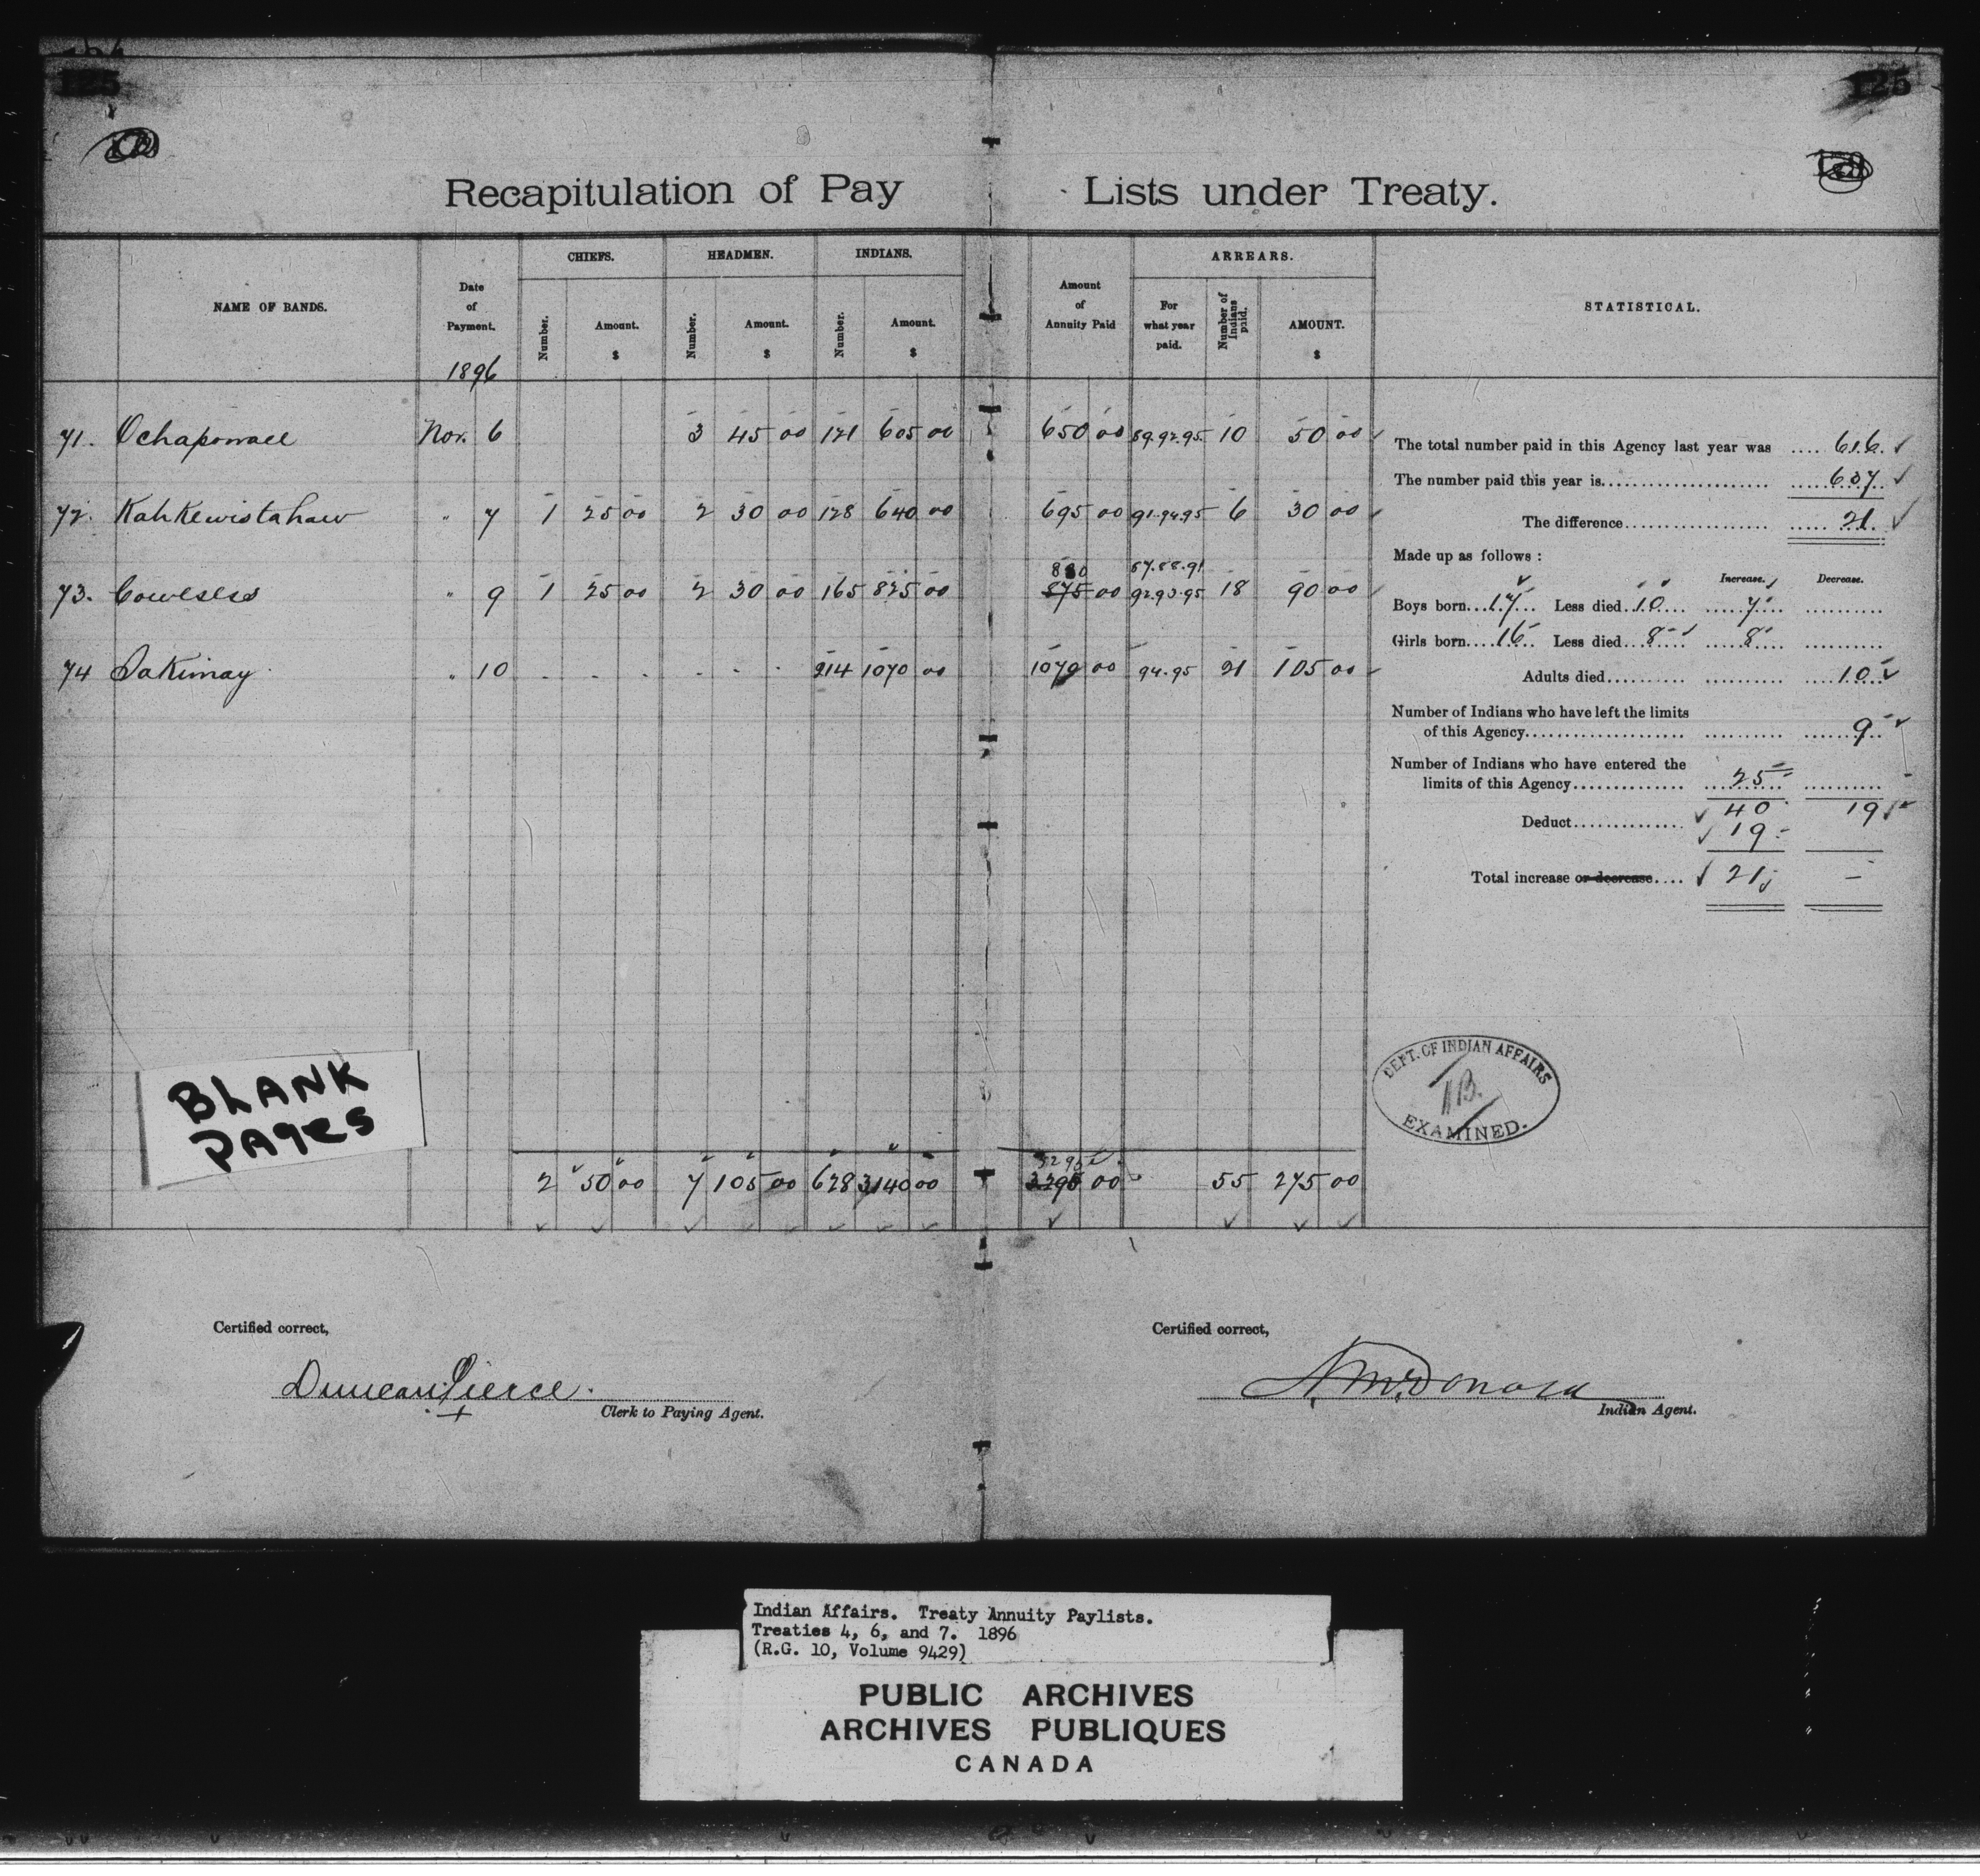 125
125
Recapitulation of Pay Lists under Treaty.
NAME OF BANDS.
Date of Payment.
1896
CHIEFS.
Number.
Amount. $
HEADMEN.
Number.
Amount. $
INDIANS.
Number.
Amount. $
Amount of Annuity Paid
ARREARS.
For what year paid.
Number of Indians paid.
AMOUNT. $
STATISTICAL.
71. Ochapowace Nov. 6 3 45 00 121 605 00 650 00 89.92.95 10 50 00
72. Kahkewistahaw " 7 1 25 00 2 30 00 128 640 00 695 00 91.94.95 6 30 00
880 87.88.91
73. Cowesess " 9 1 25 00 2 30 00 165 825 00 875 00 92.93.95 18 90 00
74 Sakimay " 10 . . . . . . 214 1070 00 1070 00 94.95 21 105 00
The total number paid in this Agency last year was .... 616.
The number paid this year is.................... 637
The difference.................... 21.
Made up as follows :
Increase. Decrease.
Boys born...17... Less died..10.... 7
Girls born....16 Less died...8.... 8
Adults died.......... 10
Number of Indians who have left the limits
of this Agency.................... 9
Number of Indians who have entered the
limits of this Agency.............. 25
40 19
Deduct.............. 19
Total increase or decrease.... 21 –
BLANK
PAges
DEPT. OF INDIAN AFFAIRS
EXAMINED.
3295
2 50 00 7 105 00 628 3140 00 3290 00 55 275 00
Certified correct,
Duncan Pierce.
Clerk to Paying Agent.
Certified correct,
A. McDonald
Indian Agent.
Indian Affairs. Treaty Annuity Paylists.
Treaties 4, 6, and 7. 1896
(R.G. 10, Volume 9429)
PUBLIC ARCHIVES
ARCHIVES PUBLIQUES
CANADA